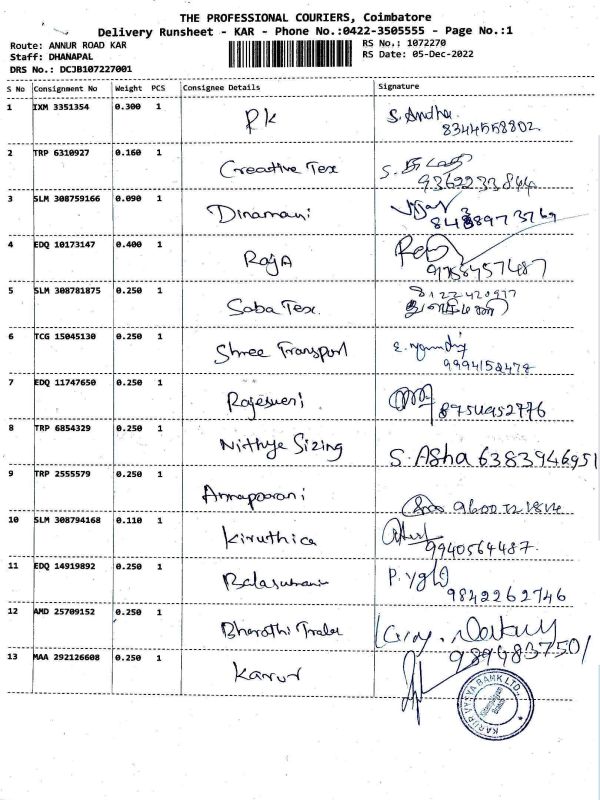 THE PROFESSIONAL COURIERS, Coimbatore
Delivery Runsheet - KAR - Phone No.:0422-3505555 - Page No.:1
Route: ANNUR ROAD KAR RS No.: 1072270
Staff: DHANAPAL RS Date: 05-Dec-2022
DRS No.: DCJB107227001
S No Consignment No Weight PCS Consignee Details Signature
1 IXM 3351354 0.300 1 RK S. Andha.
8344558802
2 TRP 6310927 0.160 1 Creative Tex S.
9362233844
3 SLM 308759166 0.090 1 Dinamani
4 EDQ 10173147 0.400 1 Raja
9758457487
5 SLM 308781875 0.250 1 Saba Tex.
8122420977
6 TCG 15045130 0.250 1 Shree Transport
9994152472
7 EDQ 11747650 0.250 1 Rajesweri 8754952776
8 TRP 6854329 0.250 1 Nithya Sizing S. Asha 6383946951
9 TRP 2555579 0.250 1 Annapoorani
10 SLM 308794168 0.110 1 Kiruthica
9940564487.
11 EDQ 14919892 0.250 1 Balasubrami
9842262746
12 AMD 25709152 0.250 1 Bharathi Trader
9894837501
13 MAA 292126608 0.250 1 Karur
KARUR VYSYA BANK LTD.